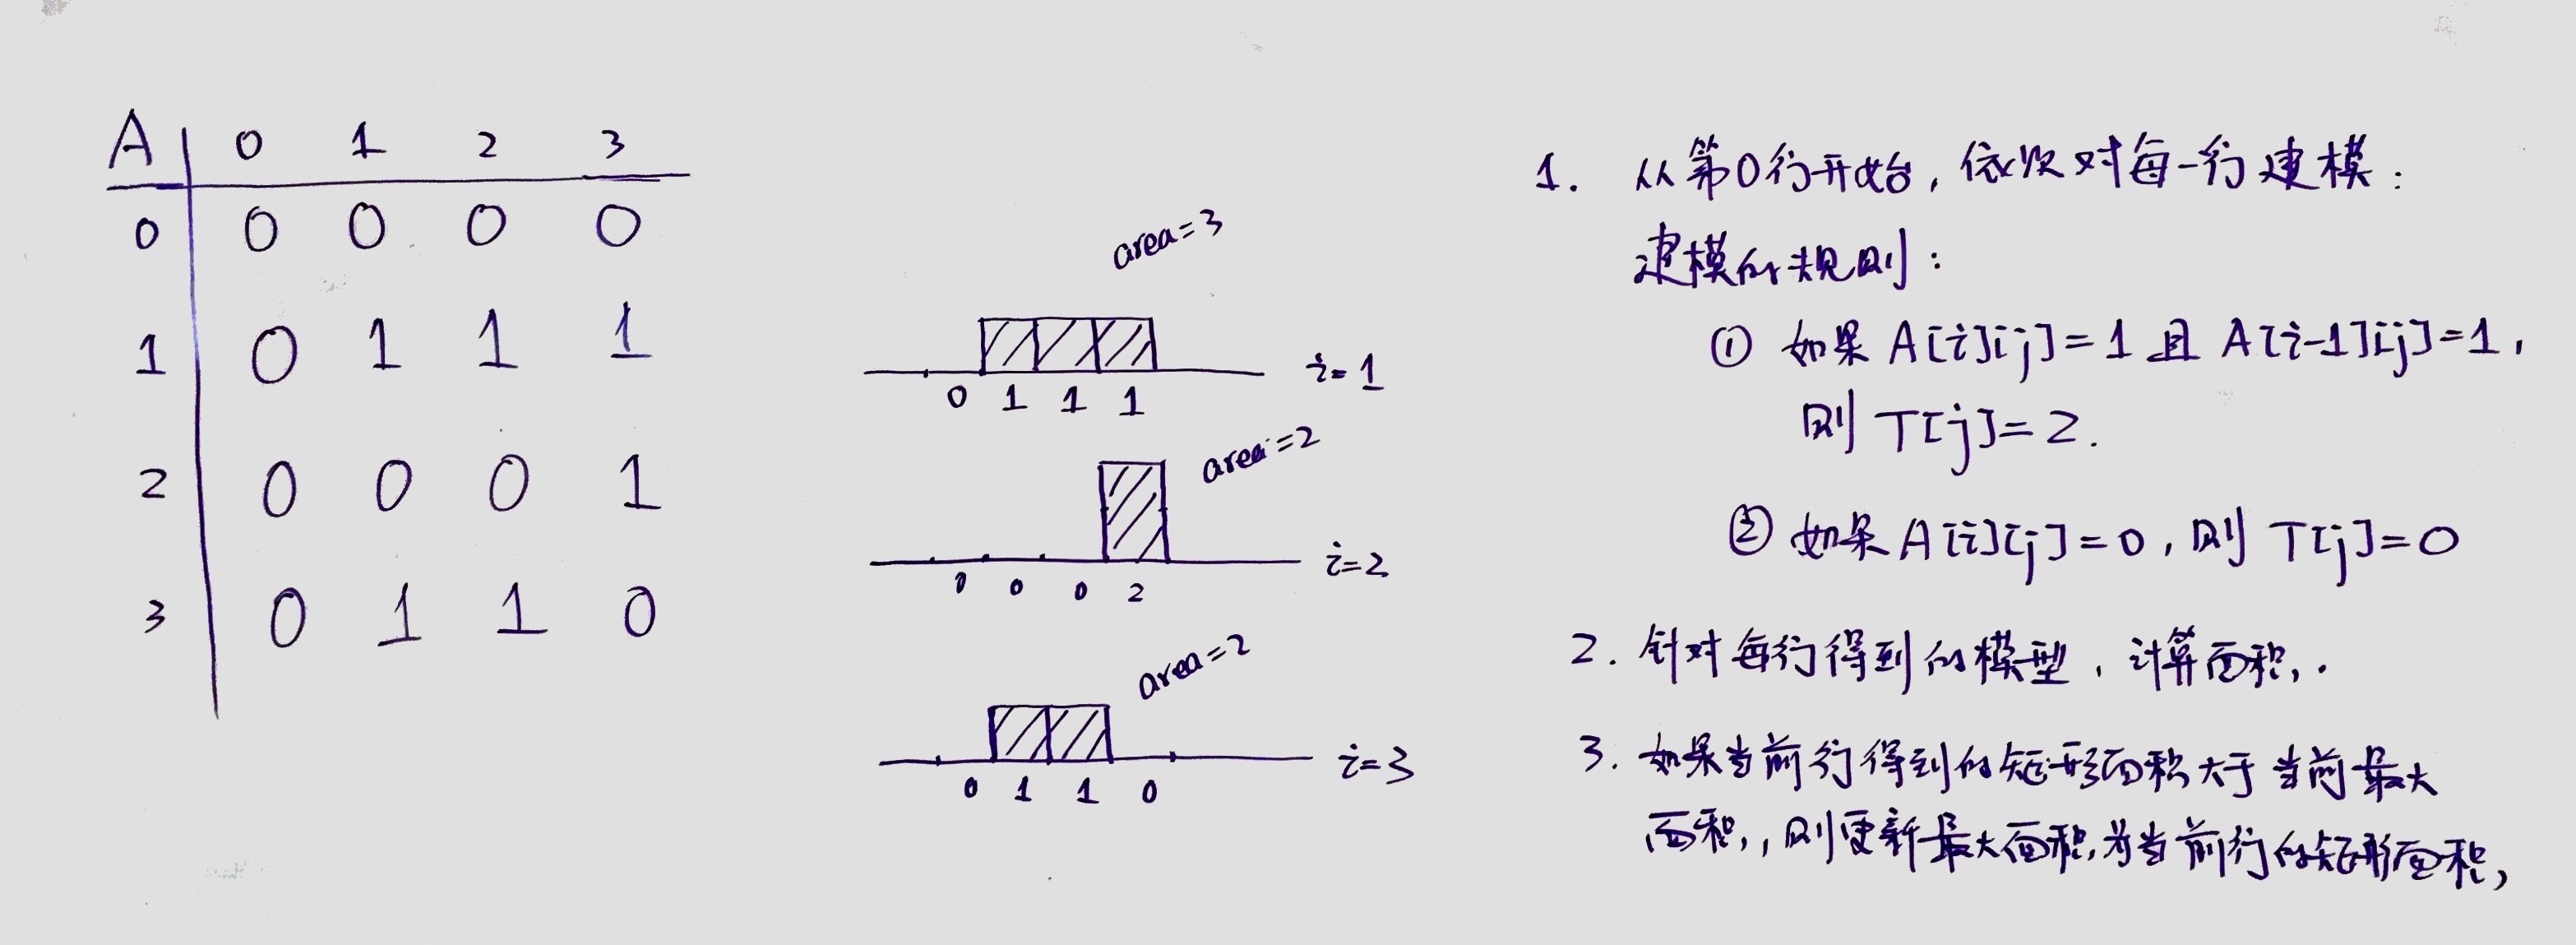 A 0 1 2 3
0 0 0 0 0
1 0 1 1 1
2 0 0 0 1
3 0 1 1 0
area=3
i=1
0 1 1 1
area=2
i=2
0 0 0 2
area=2
i=3
0 1 1 0
1. 从第0行开始,依次对每一行建模:
建模的规则:
① 如果 A[i][j]=1 且 A[i-1][j]=1,
则 T[j]=2.
② 如果 A[i][j]=0,则 T[j]=0
2. 针对每行得到的模型,计算面积.
3. 如果当前行得到的矩形面积大于当前最大
面积,则更新最大面积为当前行的矩形面积,